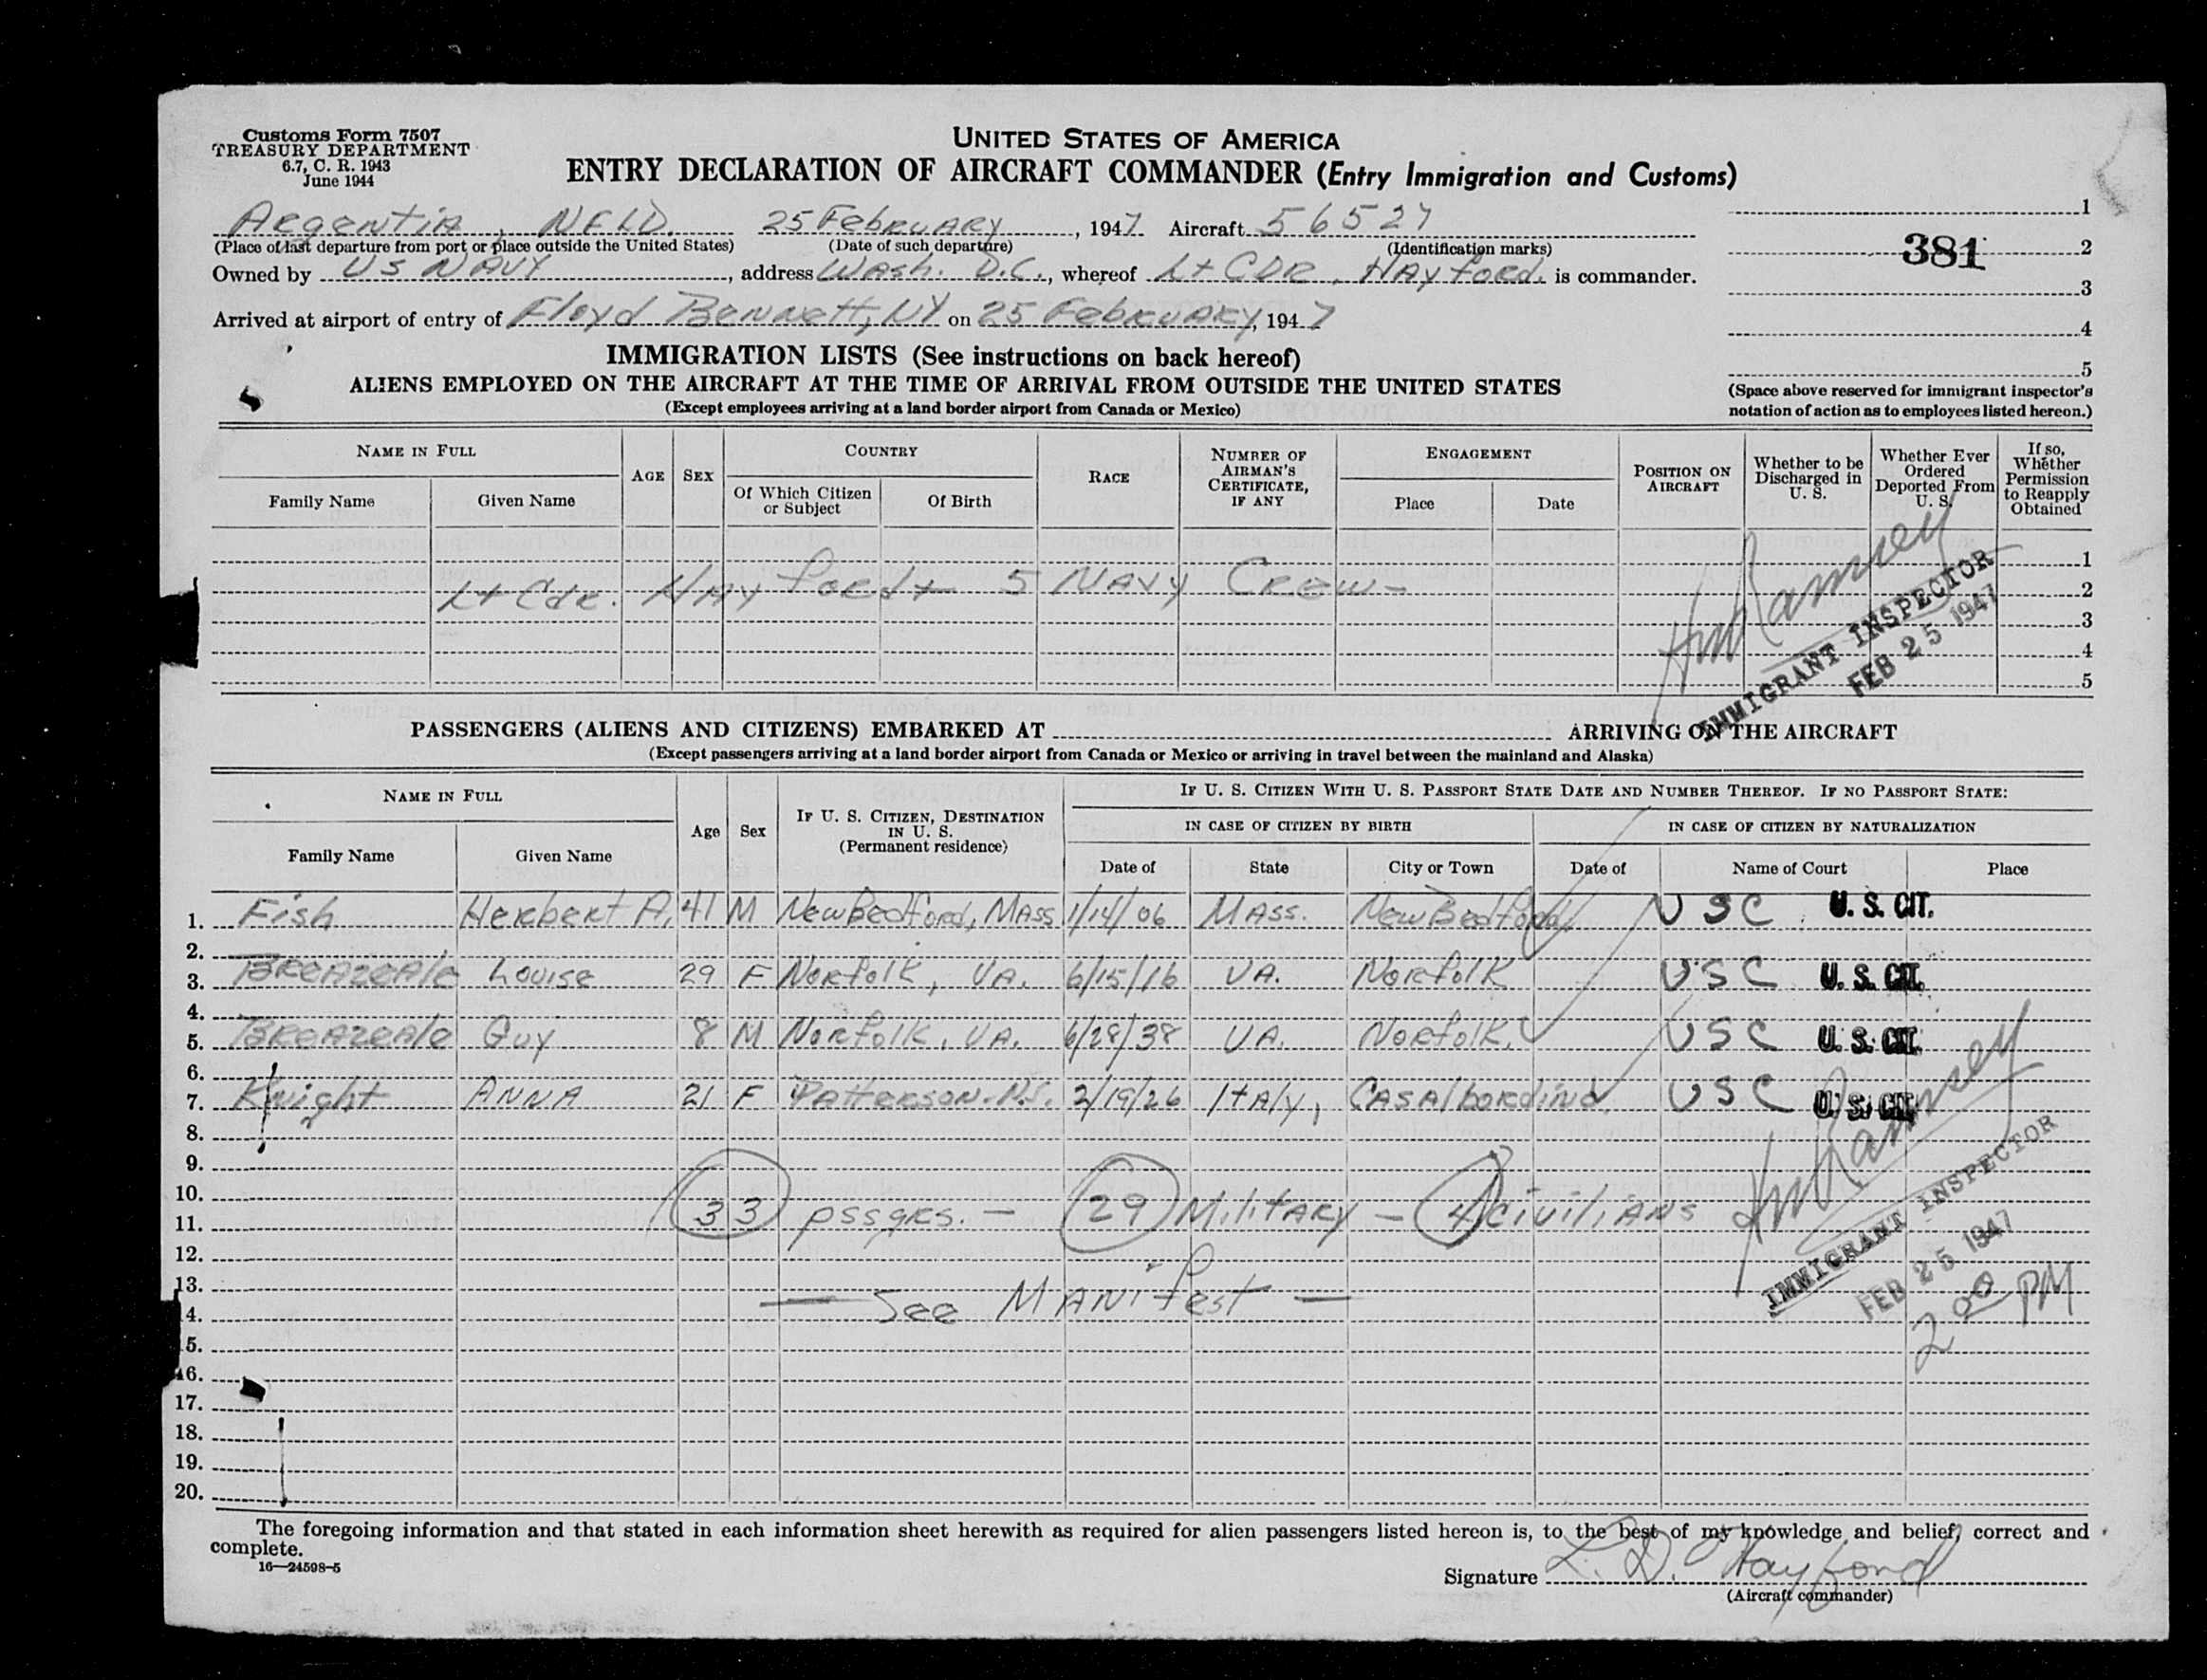 Customs Form 7507
TREASURY DEPARTMENT
6.7, C. R. 1943
June 1944
UNITED STATES OF AMERICA
ENTRY DECLARATION OF AIRCRAFT COMMANDER (Entry Immigration and Customs)
Argentia, NFLD. 25 February, 1947. Aircraft 56527
(Place of last departure from port or place outside the United States) (Date of such departure) (Identification marks)
Owned by US NAVY, address Wash. D.C., whereof Lt CDR. Hayford. is commander.
Arrived at airport of entry of Floyd Bennett, NY on 25 February, 1947
1
381 2
3
4
5
(Space above reserved for immigrant inspector's
notation of action as to employees listed hereon.)
IMMIGRATION LISTS (See instructions on back hereof)
ALIENS EMPLOYED ON THE AIRCRAFT AT THE TIME OF ARRIVAL FROM OUTSIDE THE UNITED STATES
(Except employees arriving at a land border airport from Canada or Mexico)
NAME IN FULL
Family Name Given Name
AGE SEX
COUNTRY
Of Which Citizen or Subject Of Birth
RACE
NUMBER OF AIRMAN'S CERTIFICATE, IF ANY
ENGAGEMENT
Place Date
POSITION ON AIRCRAFT
Whether to be Discharged in U. S.
Whether Ever Ordered Deported From U. S.
If so, Whether Permission to Reapply Obtained
1
Lt Cdr. Hayford + 5 Navy Crew - 2
3
4
5
HM Ramsey
IMMIGRANT INSPECTOR
FEB 25 1947
PASSENGERS (ALIENS AND CITIZENS) EMBARKED AT ARRIVING ON THE AIRCRAFT
(Except passengers arriving at a land border airport from Canada or Mexico or arriving in travel between the mainland and Alaska)
NAME IN FULL
Family Name Given Name
Age Sex
IF U. S. CITIZEN, DESTINATION IN U. S. (Permanent residence)
IF U. S. CITIZEN WITH U. S. PASSPORT STATE DATE AND NUMBER THEREOF. IF NO PASSPORT STATE:
IN CASE OF CITIZEN BY BIRTH IN CASE OF CITIZEN BY NATURALIZATION
Date of State City or Town Date of Name of Court Place
1. Fish Herbert A. 41 M New Bedford, Mass 1/14/06 Mass. New Bedford USC U. S. CIT.
2.
3. Breazeale Louise 29 F Norfolk, VA. 6/15/16 VA. Norfolk USC U. S. CIT.
4.
5. Breazeale Guy 8 M Norfolk, VA. 6/28/38 VA. Norfolk. USC U. S. CIT.
6.
7. Knight Anna 21 F Patterson. N.J. 2/19/26 Italy, Casalbordino. USC U. S. CIT.
8.
9.
10.
11. 33 pssgrs. - 29 Military - 4 civilians
12.
13.
— See Manifest —
14.
15.
16.
17.
18.
19.
20.
HM Ramsey
IMMIGRANT INSPECTOR
FEB 25 1947
2 00 PM
The foregoing information and that stated in each information sheet herewith as required for alien passengers listed hereon is, to the best of my knowledge and belief, correct and
complete.
16—24598-5
Signature L. D. Hayford
(Aircraft commander)